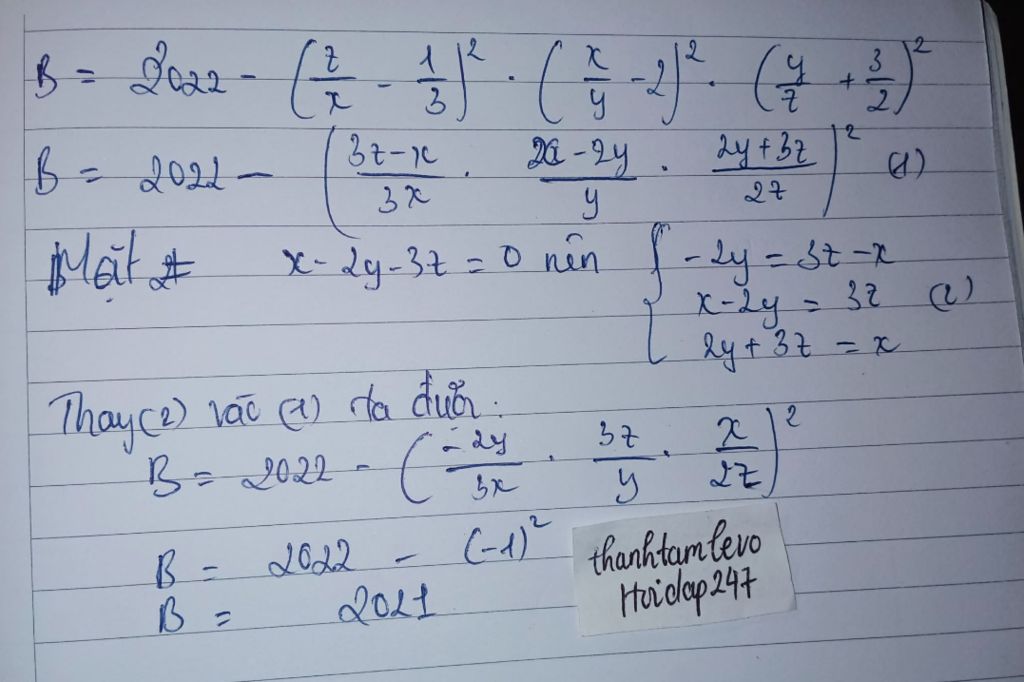 B = 2022 - (z/x - 1/3)² · (x/y - 2)² · (y/z + 3/2)²
B = 2022 - (3z-x/3x · x-2y/y · 2y+3z/2z)² (1)
Mặt ≠ x - 2y - 3z = 0 nên { -2y = 3z - x
x - 2y = 3z (2)
2y + 3z = x
Thay (2) vào (1) ta được:
B = 2022 - (-2y/3x · 3z/y · x/2z)²
B = 2022 - (-1)²
B = 2021
thanhtamlevo
Hoidap247